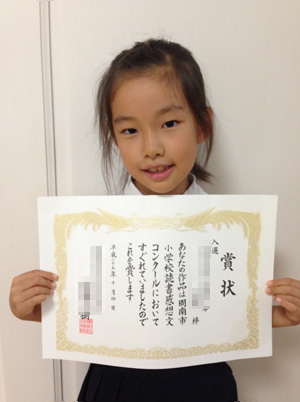 賞状
入選
殿
あなたの作品は周南市
小学校読書感想文
コンクールにおいて
すぐれていましたので
これを賞します
平成二十五年十月四日